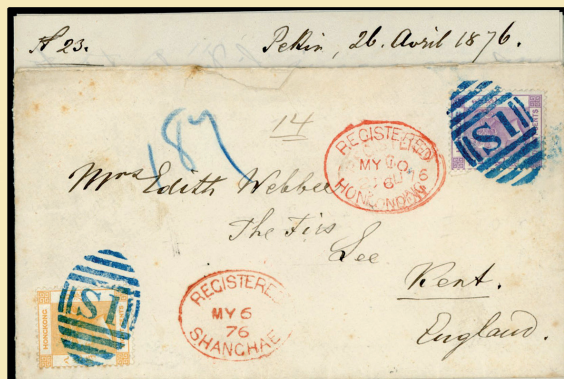 N 23. Pekin, 26. Avril 1876.
187
14
REGISTERED
MY
HONG
CENTS
S1
Mrs Edith Webber
The Firs
Lee
Kent.
England.
HONGKONG
S1
REGISTERED
MY 6
76
SHANGHAE